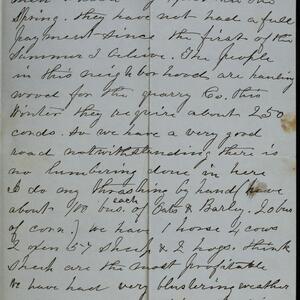 Spring. They have not had a full
payment since the first of the
Summer I believe. The people
in this neighborhood are hauling
wood for the quarry Co. this
Winter they require about 250
cords. so we have a very good
road notwithstanding there is
no lumbering done in here
I do my thrashing by hand (have
about 100 bus. each of Oats & Barly. 20 bus
of corn.) we have 1 horse, cows
2 oxen 57 sheep & 2 hogs. think
sheep are the most profitable
We have had very blustering weather